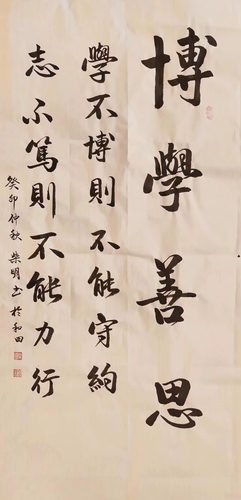 博學善思
學不博則不能守約
志不篤則不能力行
癸卯仲秋 柴明書於和田